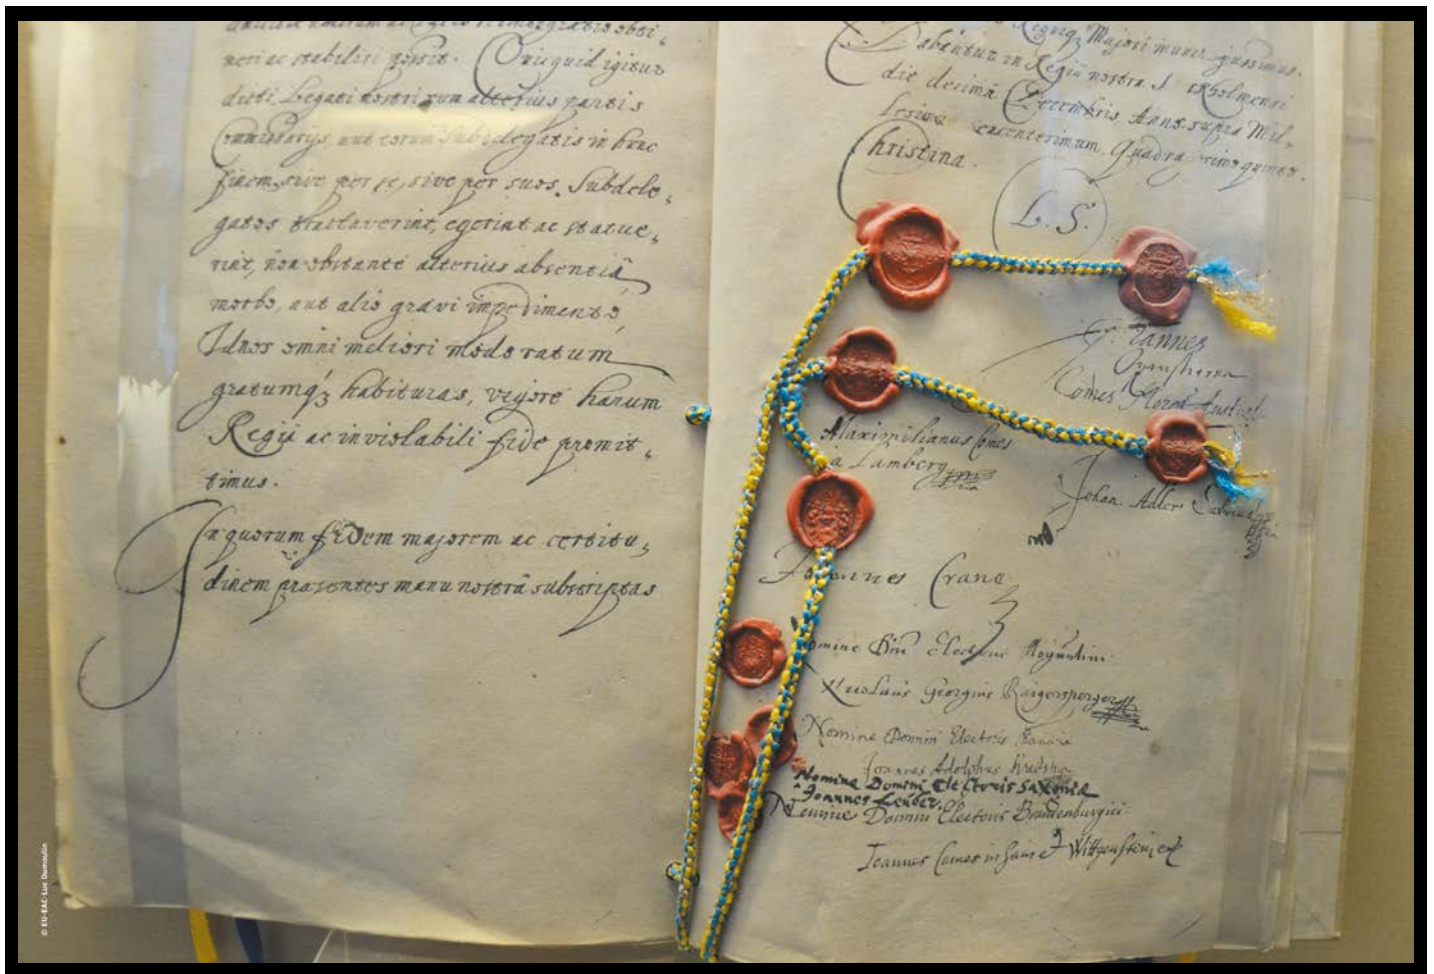 neri ac stabiliri possit. Quicquid igitur
dicti Legati nostri cum alterius partis
Commissarijs, aut eorum Subdelegatis in hunc
finem, sive per se, sive per suos Subdele„
gatos tractaverint, egerint ac statue„
rint, non obstante alterius absentiâ,
morbo, aut alio gravi impedimento,
Id nos omni meliori modo ratum
gratumq; habituras, vigore harum
Regiè ac inviolabili fide promit„
timus.
In quorum fidem majorem ac certitu„
dinem præsentes manu nostrâ subscriptas
Majori muniri jussimus.
Dabantur in Regiâ nostrâ
die decimâ Decembris, Anno supra Mil„
Christina.
L. S.
Johannes
Comes
Maximilianus Comes
a Lamberg
Johan Adler
Joannes Crane
Nomine Dni Electoris Moguntini
Georgius Raigersperger
Nomine Domini Electoris
Joannes Adolphus
Nomine Domini Electoris Saxoniæ
Joannes Leuber.
Nomine Domini Electoris Brandenburgici
Joannes Comes in Sain et Wittgenstein
© EU-EAC-Luc Dumoulin